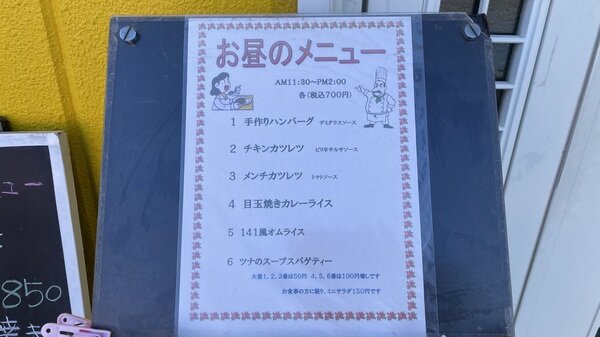 お昼のメニュー
AM11:30〜PM2:00
各(税込700円)
1 手作りハンバーグ デミグラスソース
2 チキンカツレツ ピリ辛サルサソース
3 メンチカツレツ トマトソース
4 目玉焼きカレーライス
5 141風オムライス
6 ツナのスープスパゲティー
大盛1、2、3番は50円 4、5、6番は100円増しです
お食事の方に限り、ミニサラダ150円です
ュー
850